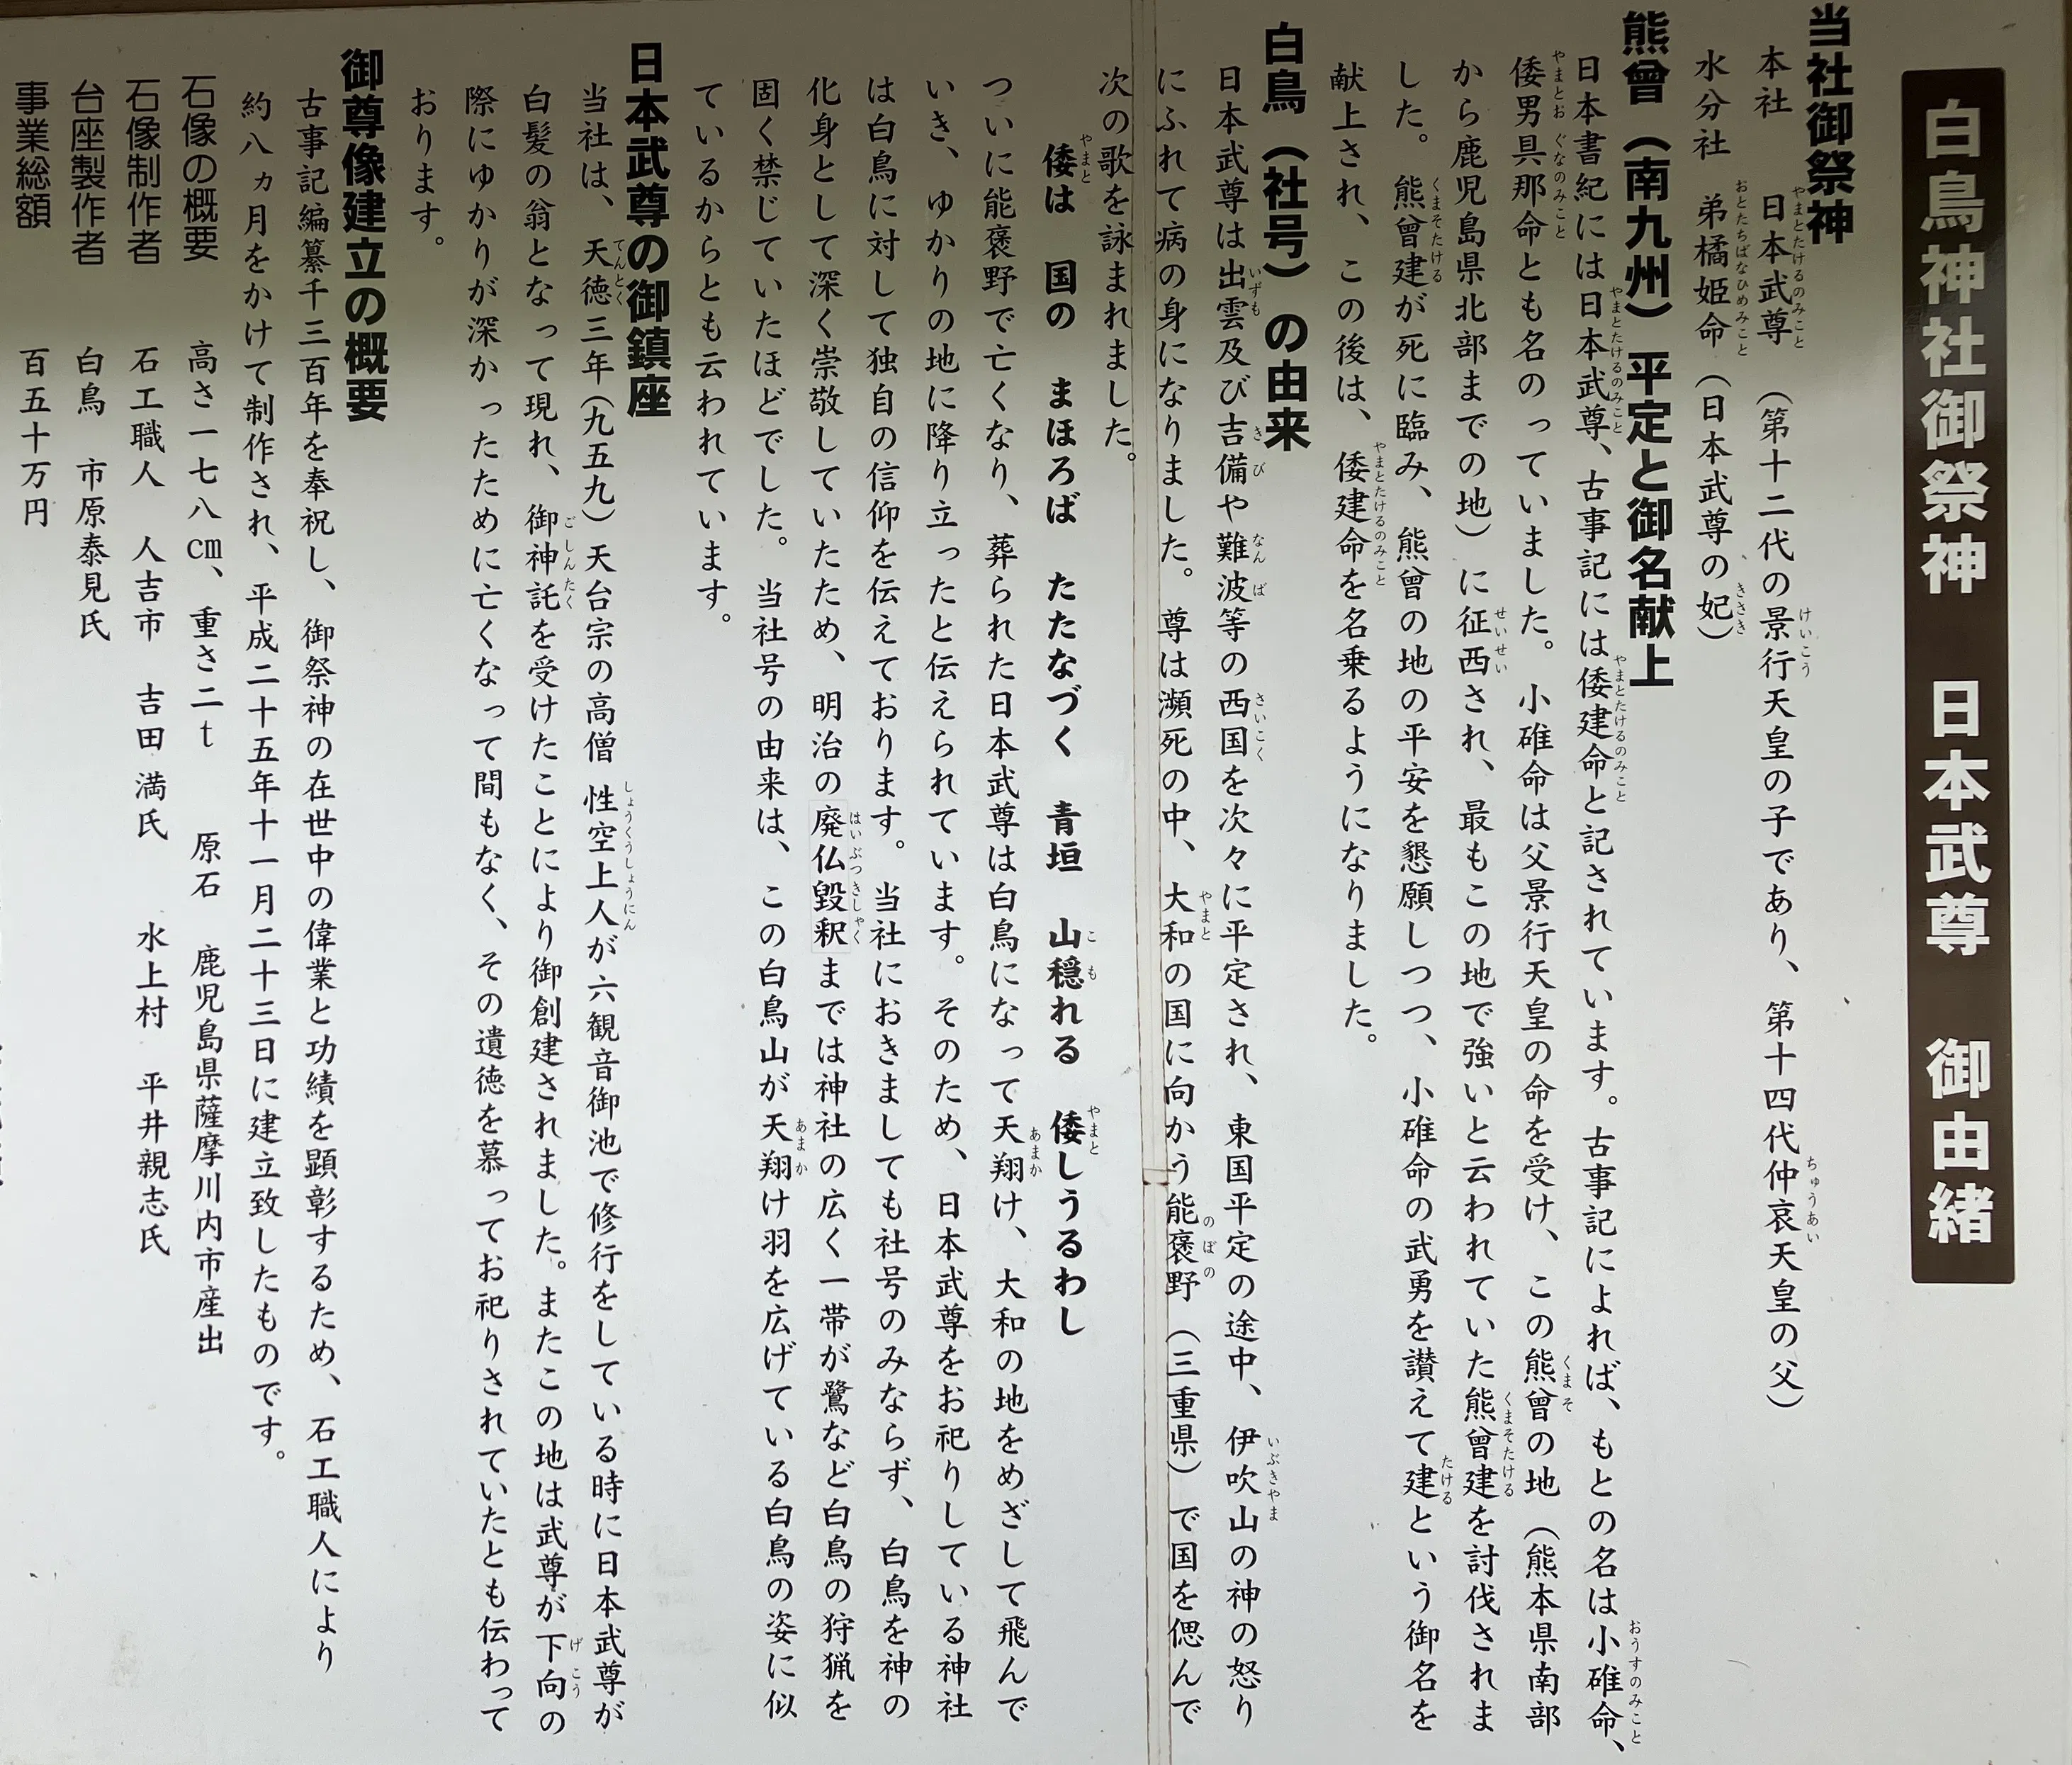 白鳥神社御祭神　日本武尊　御由緒
当社御祭神
本社　日本武尊　（第十二代の景行天皇の子であり、第十四代仲哀天皇の父）
水分社　弟橘姫命（日本武尊の妃）
熊曾（南九州）平定と御名献上
日本書紀には日本武尊、古事記には倭建命と記されています。古事記によれば、もとの名は小碓命、
倭男具那命とも名のっていました。小碓命は父景行天皇の命を受け、この熊曾の地（熊本県南部
から鹿児島県北部までの地）に征西され、最もこの地で強いと云われていた熊曾建を討伐されま
した。熊曾建が死に臨み、熊曾の地の平安を懇願しつつ、小碓命の武勇を讃えて建という御名を
献上され、この後は、倭建命を名乗るようになりました。
白鳥（社号）の由来
日本武尊は出雲及び吉備や難波等の西国を次々に平定され、東国平定の途中、伊吹山の神の怒り
にふれて病の身になりました。尊は瀕死の中、大和の国に向かう能褒野（三重県）で国を偲んで
次の歌を詠まれました。
倭は　国の　まほろば　たたなづく　青垣　山穏れる　倭しうるわし
ついに能褒野で亡くなり、葬られた日本武尊は白鳥になって天翔け、大和の地をめざして飛んで
いき、ゆかりの地に降り立ったと伝えられています。そのため、日本武尊をお祀りしている神社
は白鳥に対して独自の信仰を伝えております。当社におきましても社号のみならず、白鳥を神の
化身として深く崇敬していたため、明治の廃仏毀釈までは神社の広く一帯が鷺など白鳥の狩猟を
固く禁じていたほどでした。当社号の由来は、この白鳥山が天翔け羽を広げている白鳥の姿に似
ているからとも云われています。
日本武尊の御鎮座
当社は、天徳三年（九五九）天台宗の高僧　性空上人が六観音御池で修行をしている時に日本武尊が
白髪の翁となって現れ、御神託を受けたことにより御創建されました。またこの地は武尊が下向の
際にゆかりが深かったために亡くなって間もなく、その遺徳を慕ってお祀りされていたとも伝わって
おります。
御尊像建立の概要
古事記編纂千三百年を奉祝し、御祭神の在世中の偉業と功績を顕彰するため、石工職人により
約八ヵ月をかけて制作され、平成二十五年十一月二十三日に建立致したものです。
石像の概要　高さ一七八cm、重さ二t　原石　鹿児島県薩摩川内市産出
石像制作者　石工職人　人吉市　吉田　満氏　水上村　平井親志氏
台座製作者　白鳥　市原泰見氏
事業総額　百五十万円